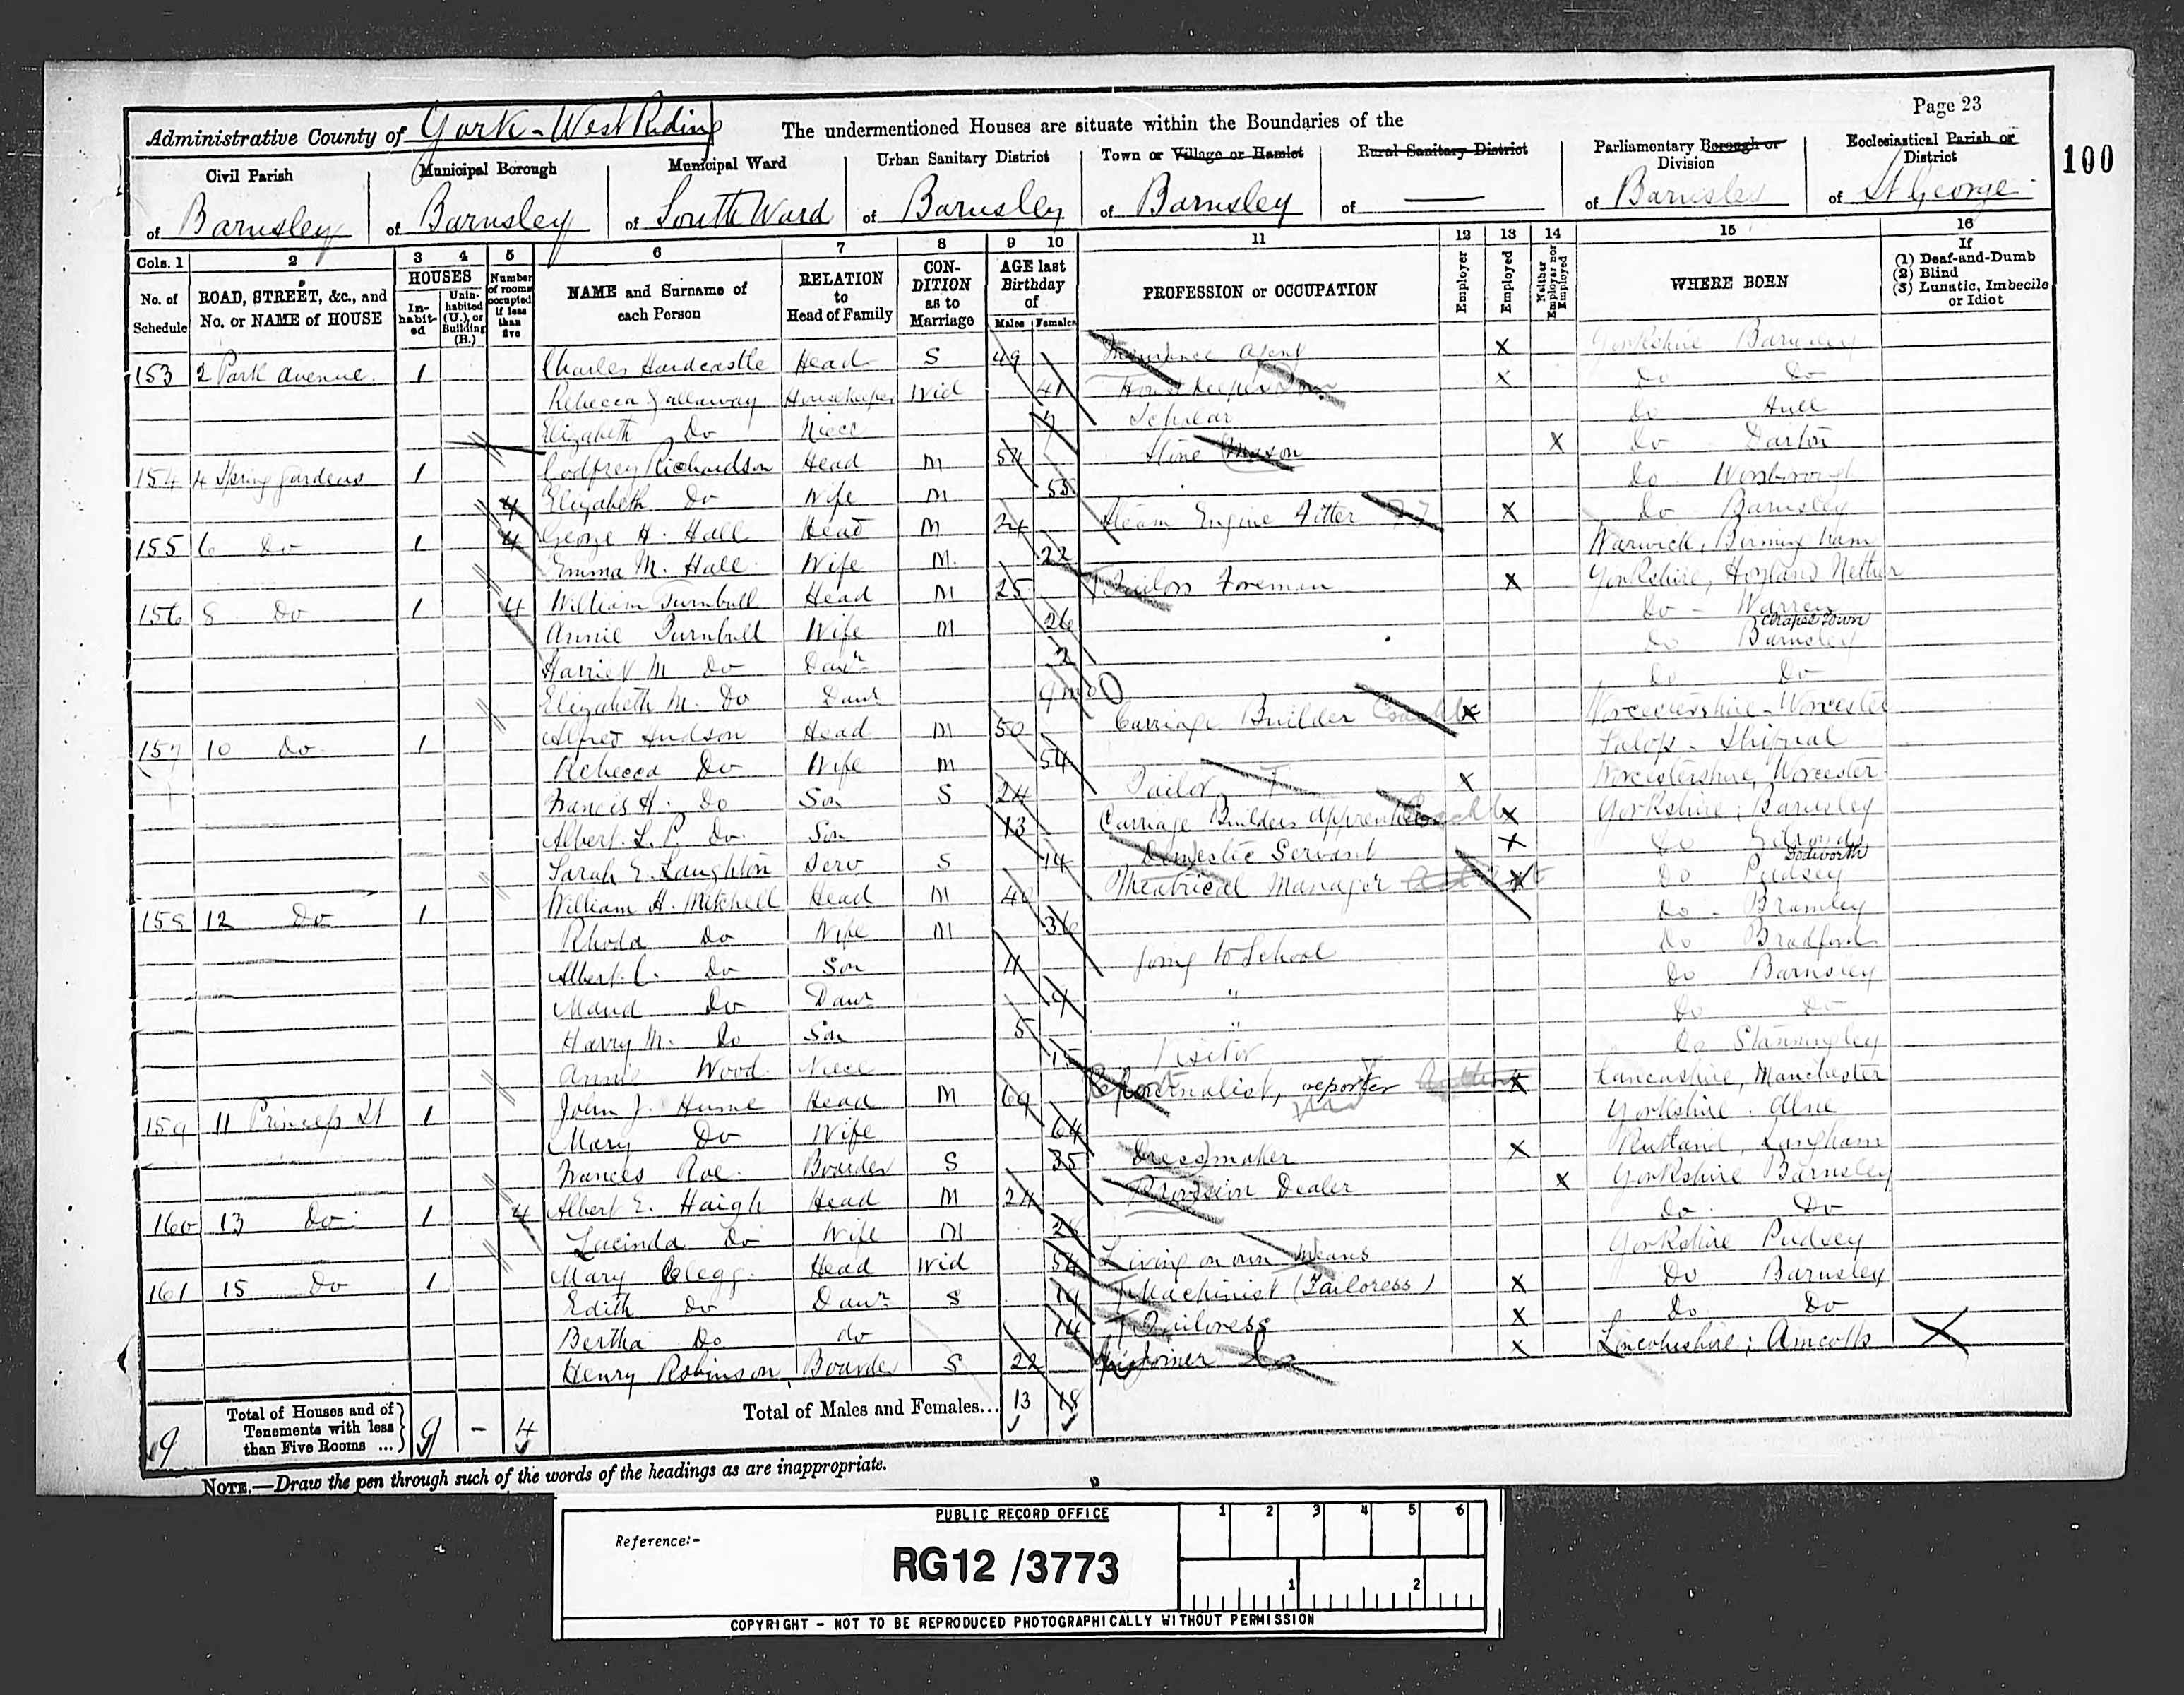 Page 23
100
Administrative County of York - West Riding
The undermentioned Houses are situate within the Boundaries of the
Civil Parish of Barnsley
Municipal Borough of Barnsley
Municipal Ward of South Ward
Urban Sanitary District of Barnsley
Town or Village or Hamlet of Barnsley
Rural Sanitary District of —
Parliamentary Borough or Division of Barnsley
Ecclesiastical Parish or District of St George
Cols. 1 2 3 4 5 6 7 8 9 10 11 12 13 14 15 16
No. of Schedule
ROAD, STREET, &c., and No. or NAME of HOUSE
HOUSES
In-habit-ed
Unin-habited (U.), or Building (B.)
Number of rooms occupied if less than five
NAME and Surname of each Person
RELATION to Head of Family
CON-DITION as to Marriage
AGE last Birthday of
Males Females
PROFESSION or OCCUPATION
Employer
Employed
Neither Employer nor Employed
WHERE BORN
If
(1) Deaf-and-Dumb
(2) Blind
(3) Lunatic, Imbecile or Idiot
153 2 Park Avenue 1 Charles Hardcastle Head S 49 Insurance Agent X Yorkshire Barnsley
Rebecca Gallaway Housekeeper Wid 41 Housekeeper Dom X Do Do
Elizabeth Do Niece 7 Scholar Do Hull
154 4 Spring Gardens 1 Godfrey Richardson Head M 54 Stone Mason X Do Darton
4 Elizabeth Do Wife M 55 Do Worsborough
155 6 Do 1 4 George H. Hall Head M 24 Steam Engine Fitter X Do Barnsley
Emma M. Hall Wife M. 22 Warwick, Birmingham
156 8 Do 1 4 William Turnbull Head M 25 Tailors Foreman X Yorkshire, Hoyland Nether
Annie Turnbull Wife M 26 Do - Warren Chapel Town
Harriet M Do Daur 2 Do Barnsley
Elizabeth M. Do Daur 9 mo Do Do
157 10 Do 1 Alfred Hudson Head M 50 Carriage Builder X Worcestershire - Worcester
Rebecca Do Wife M 54 Salop - Shifnal
Francis H. Do Son S 24 Tailor X Worcestershire, Worcester
Albert L. P. Do Son 13 Carriage Builders Apprentice X Yorkshire; Barnsley
Sarah E. Laughton Serv S 14 Domestic Servant X Do Dodworth
158 12 Do 1 William H. Mitchell Head M 40 Theatrical Manager X Do Pudsey
Rhoda Do Wife M 36 Do - Bramley
Albert C. Do Son 11 Going to School Do Bradford
Maud Do Daur 7 " Do Barnsley
Harry M. Do Son 5 " Do Do
Annie Wood Niece 15 Visitor Do Stanningley
159 11 Princess St 1 John J. Hume Head M 69 Journalist, reporter X Lancashire, Manchester
Mary Do Wife 64 Yorkshire. Alne
Frances Roe. Boarder S 35 Dressmaker X Rutland, Langham
160 13 Do 1 4 Albert E. Haigh Head M 24 Provision Dealer X Yorkshire Barnsley
Lucinda Do Wife M 26 Do. Do
161 15 Do 1 Mary Clegg. Head Wid 54 Living on own means Yorkshire Pudsey
Edith Do Daur S Machinist (Tailoress) X Do Barnsley
Bertha Do do 14 Tailoress X Do Do
Henry Robinson Boarder S 22 Joiner X Lincolnshire; Amcotts X
9 Total of Houses and of Tenements with less than Five Rooms ...} 9 - 4 Total of Males and Females... 13 18
NOTE.—Draw the pen through such of the words of the headings as are inappropriate.
PUBLIC RECORD OFFICE
1 2 3 4 5 6
Reference:-
RG12 /3773
1 2
COPYRIGHT - NOT TO BE REPRODUCED PHOTOGRAPHICALLY WITHOUT PERMISSION